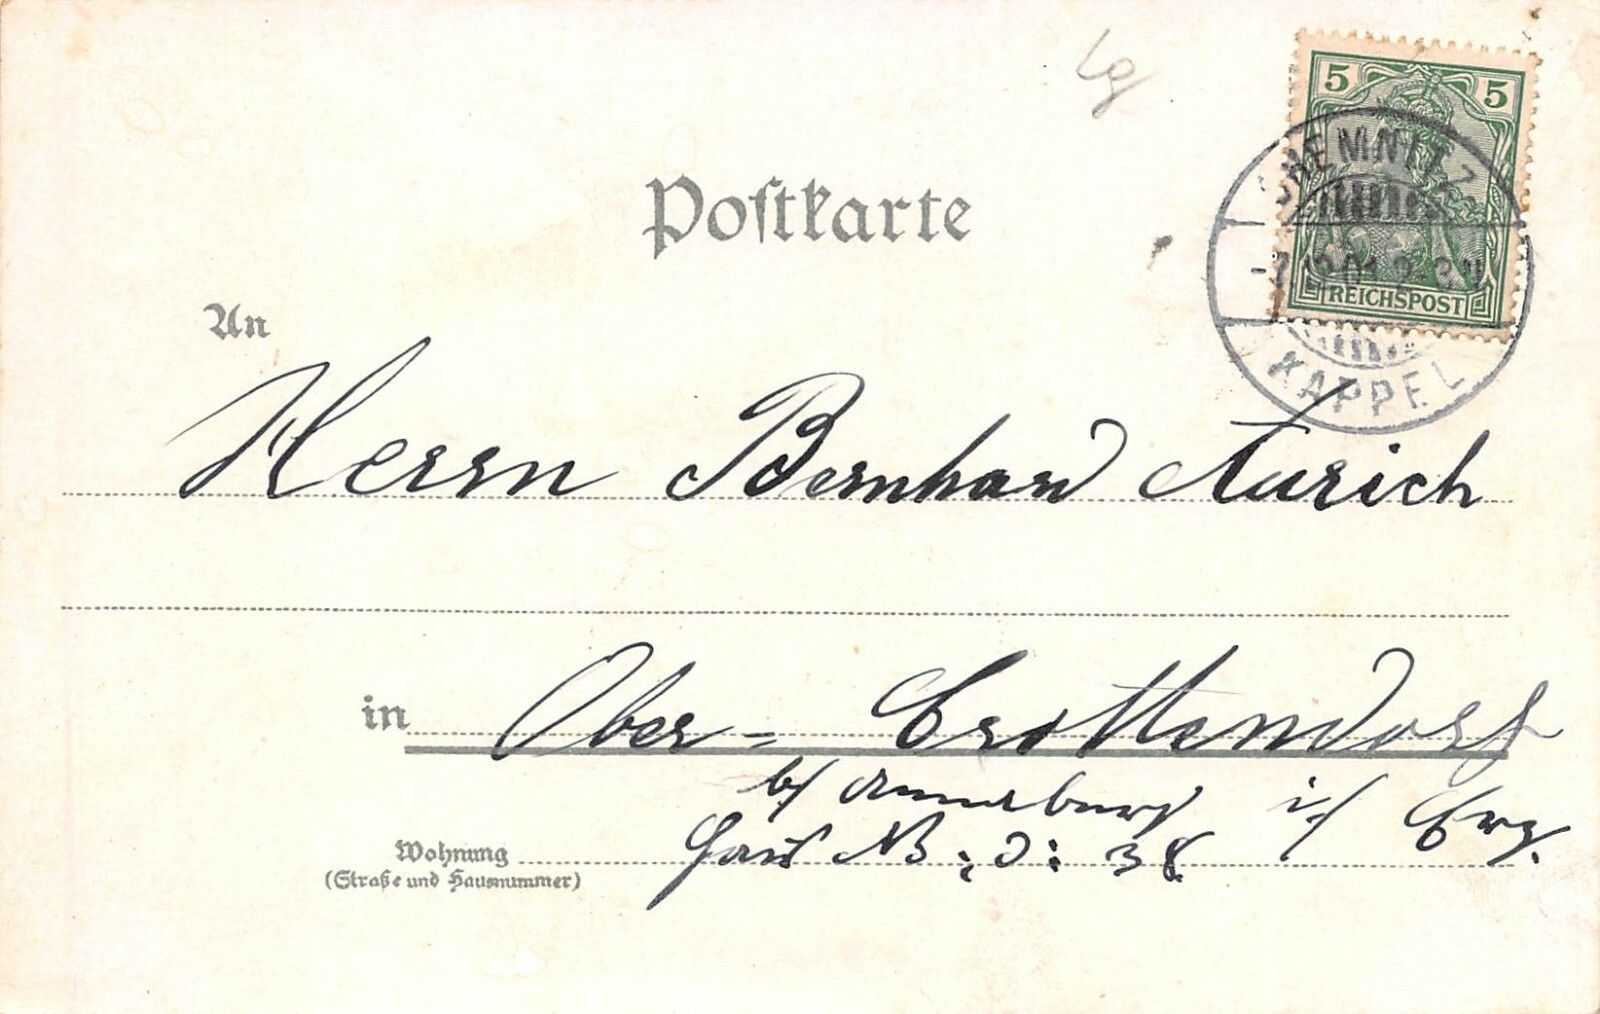 5 5
CHEMNITZ
Postkarte
REICHSPOST
KAPPEL
An
Herrn Bernhard Aurich
in Ober- Crottendorf
b/ Annaberg i/ Erzg.
Wohnung Haus No 38
(Straße und Hausnummer)